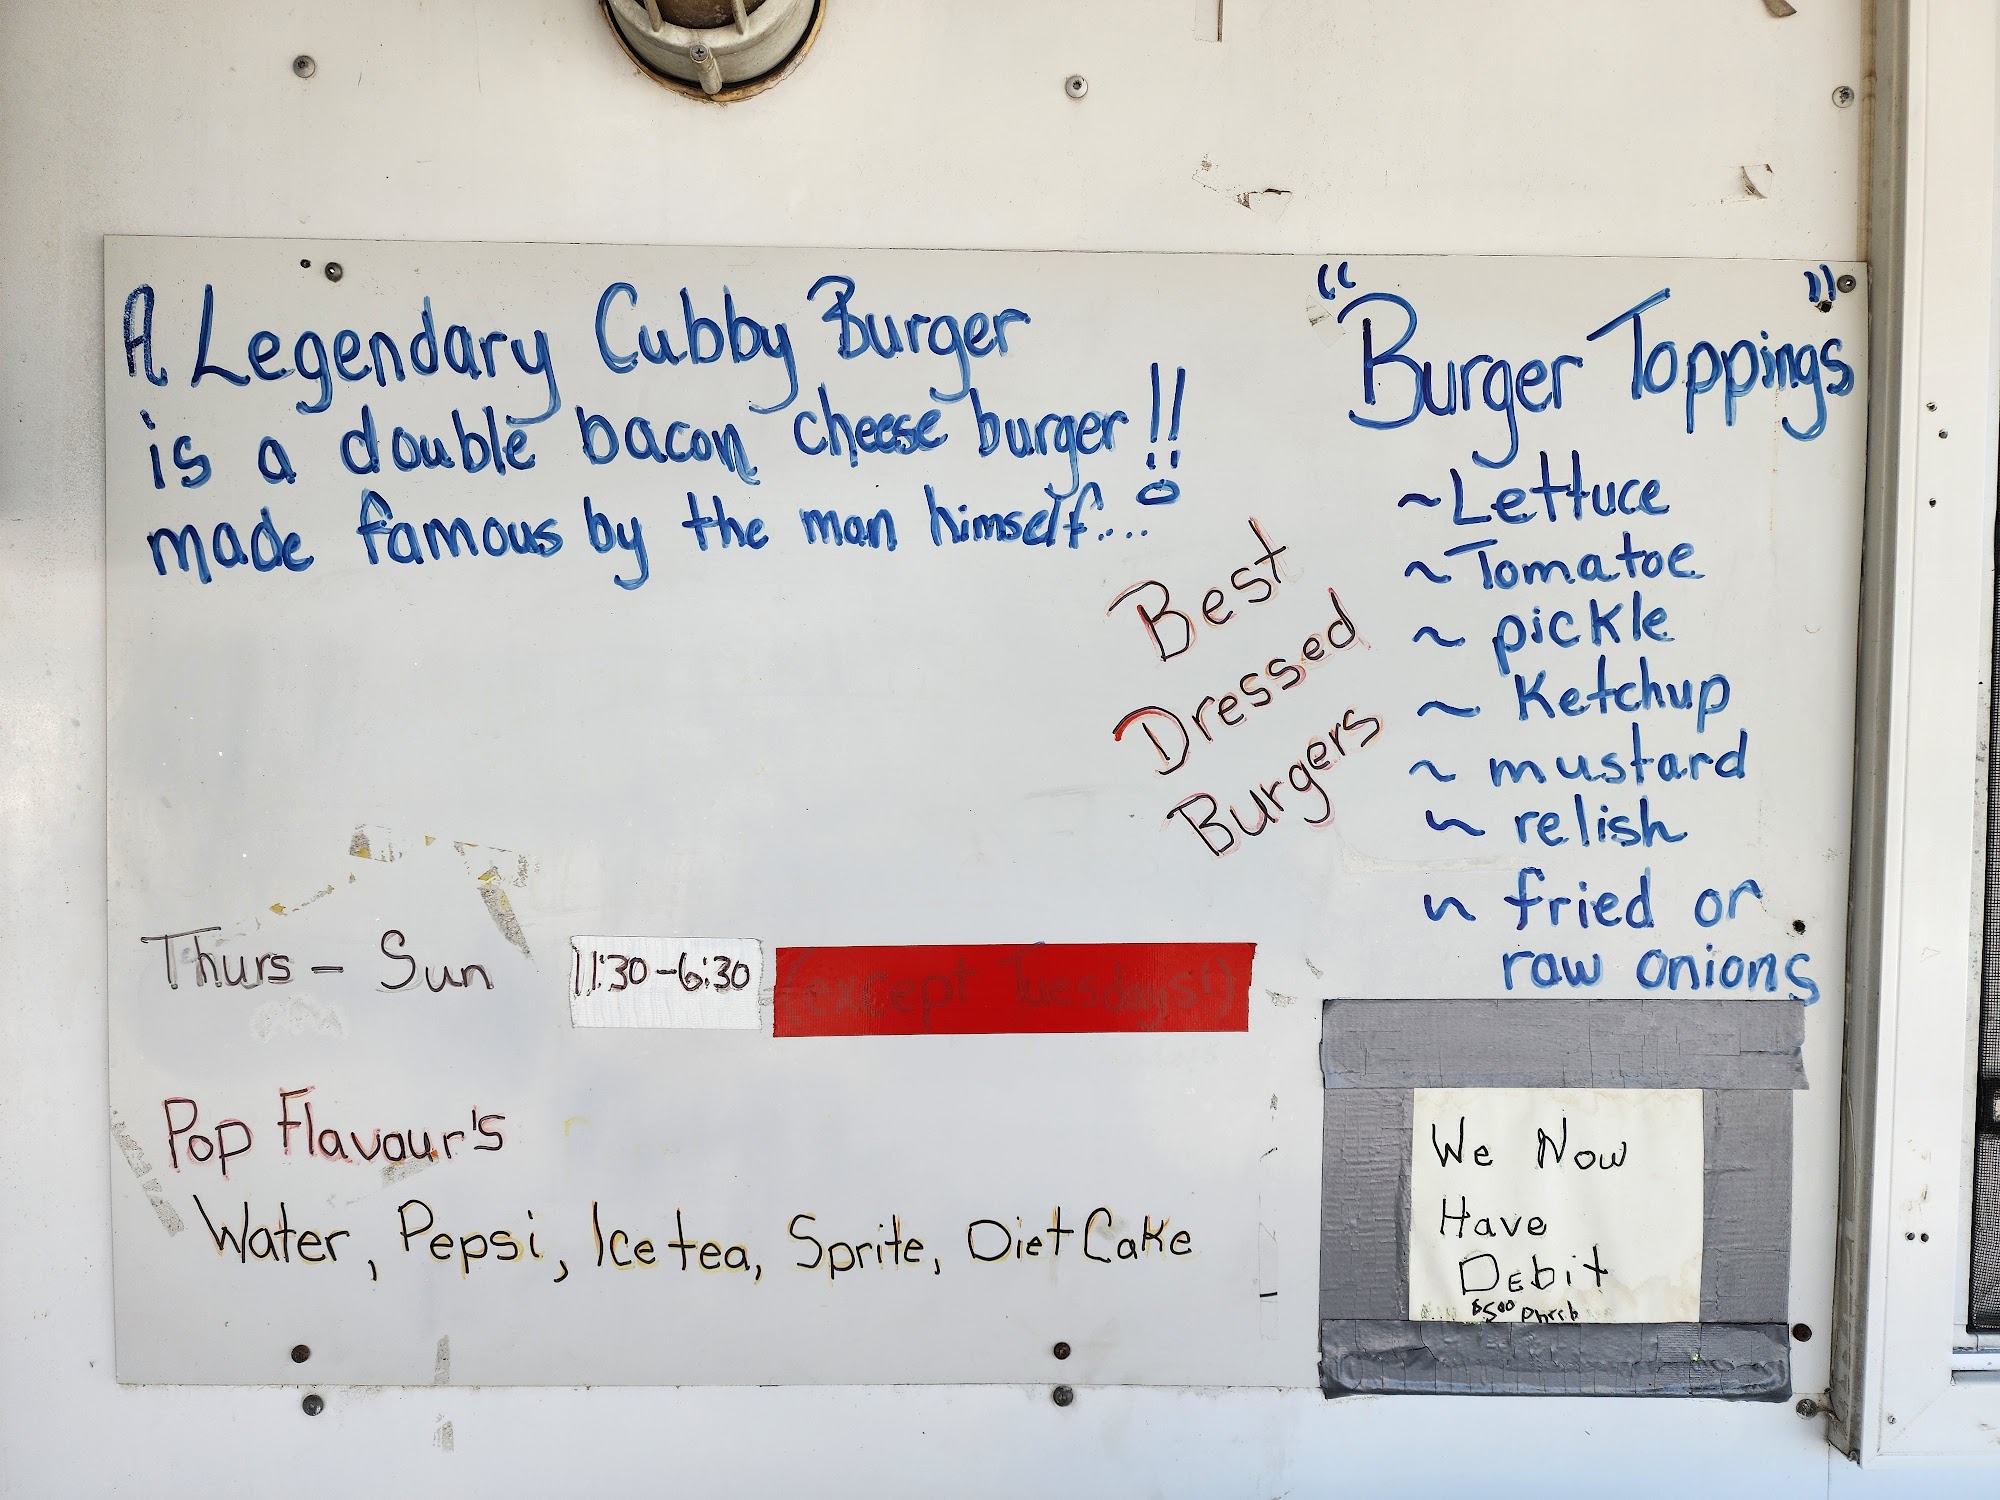 A Legendary Cubby Burger
is a double bacon cheese burger!!
made famous by the man himself....
"Burger Toppings"
~Lettuce
~Tomatoe
~ pickle
~ Ketchup
~ mustard
~ relish
~ fried or
raw onions
Best
Dressed
Burgers
Thurs - Sun 11:30-6:30 (except Tuesdays!)
Pop Flavour's
Water, Pepsi, Ice tea, Sprite, Diet Cake
We Now
Have
Debit
$500